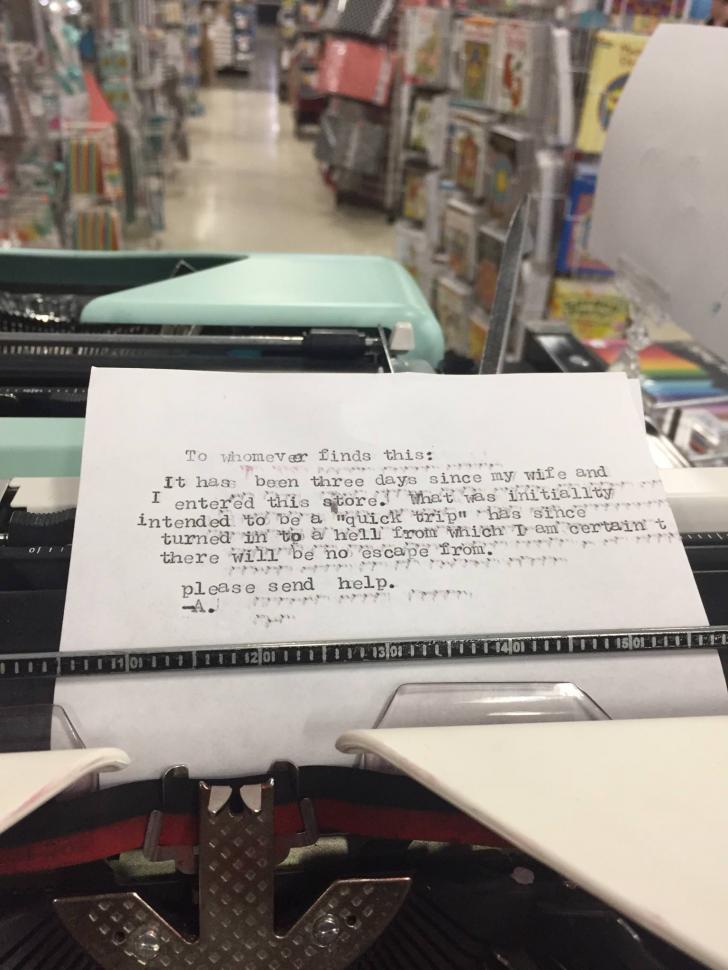 To whomever finds this:
It has been three days since my wife and
I entered this store. What was initiallty
intended to be a "quick trip" has since
turned in to a hell from which I am certain t
there will be no escape from.
please send help.
-A.